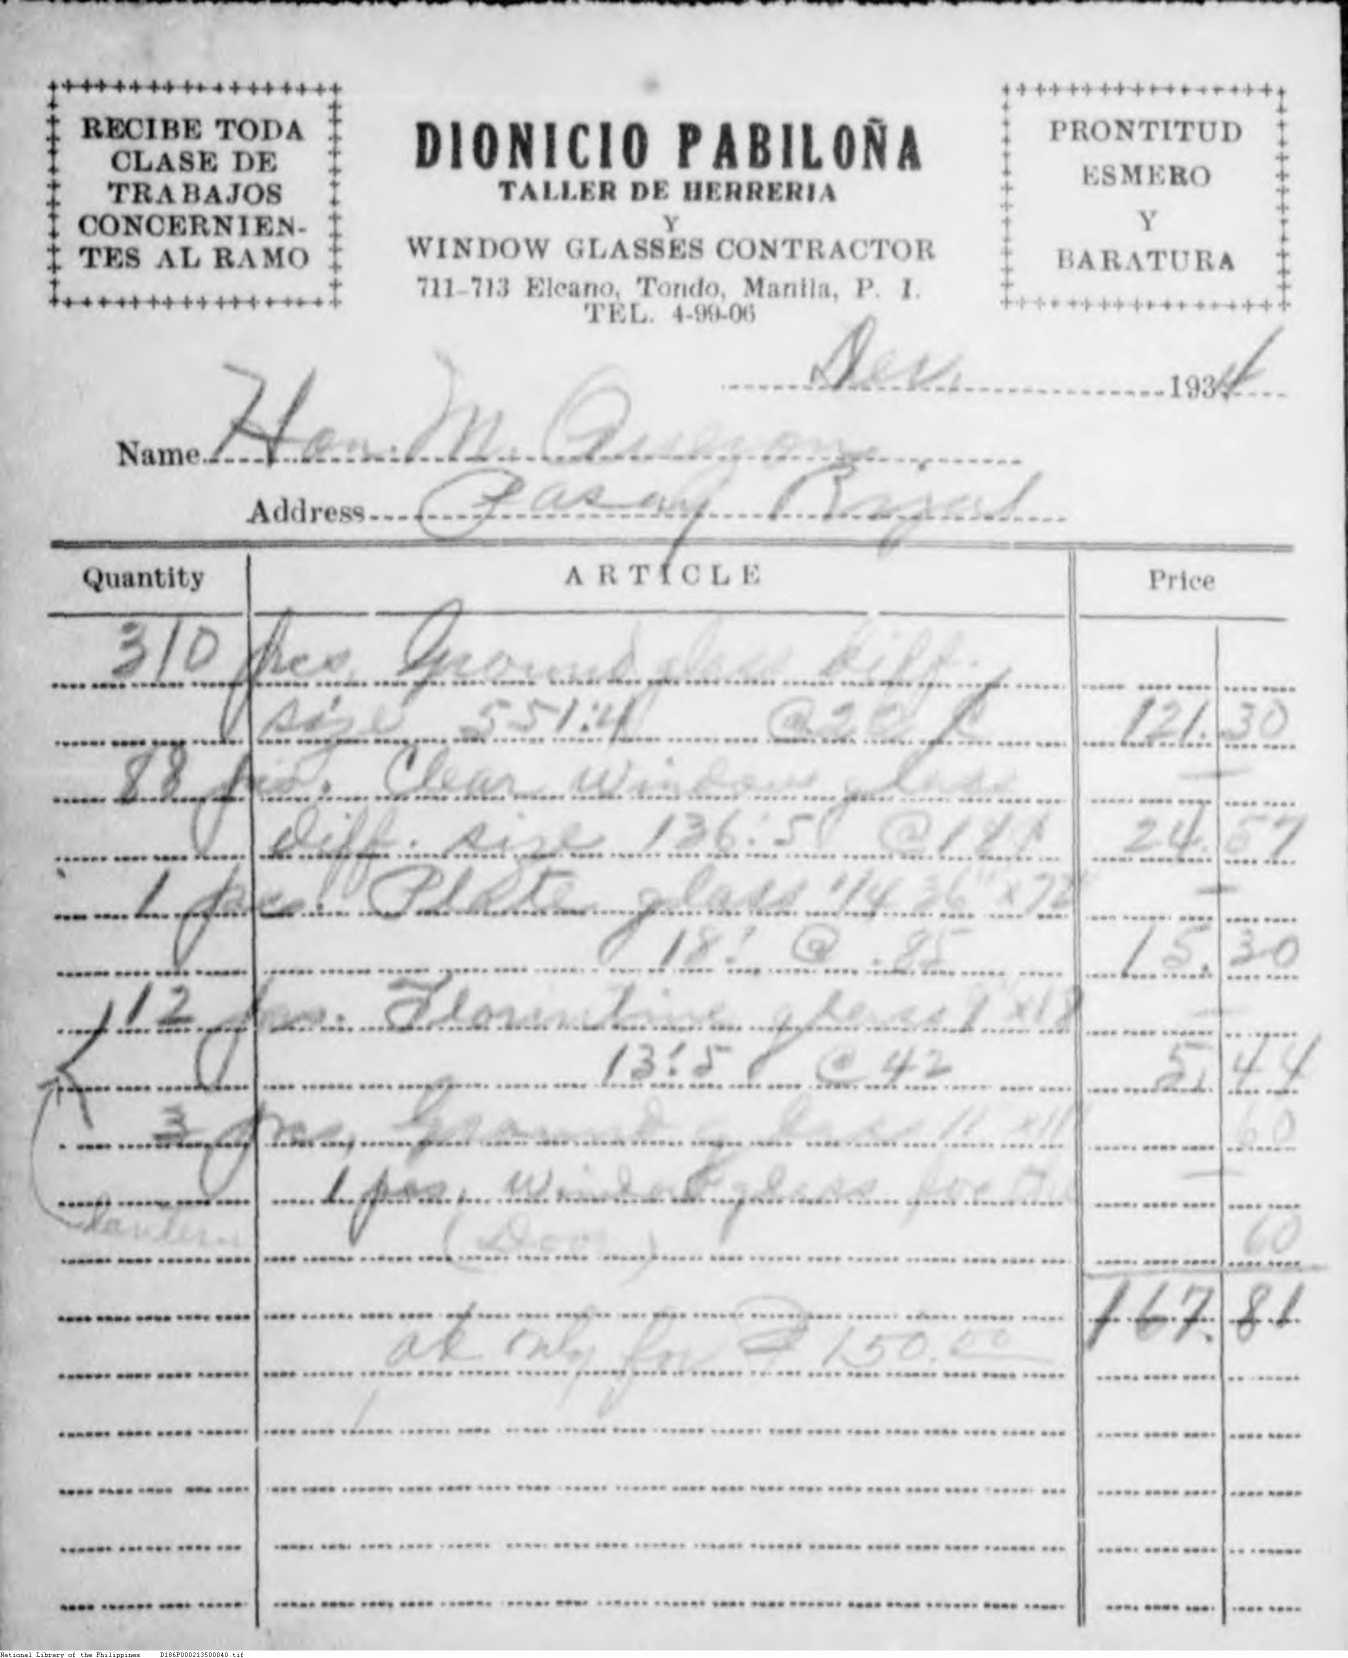 RECIBE TODA
CLASE DE
TRABAJOS
CONCERNIEN-
TES AL RAMO
DIONICIO PABILOÑA
TALLER DE HERRERIA
Y
WINDOW GLASSES CONTRACTOR
711-713 Elcano, Tondo, Manila, P. I.
TEL. 4-99-06
PRONTITUD
ESMERO
Y
BARATURA
1934
Name Hon. M. Quezon
Address Pasay Rizal
Quantity ARTICLE Price
310 pcs. Ground glass diff.
size 551:4 @ 22 ¢ 121.30
88 pcs. Clear window glass
diff. size 136:5 @ 121.57
1 pcs. Plate glass 1/4 36" x 72"
18: @ .85 15.30
12 pcs. Florentine glass 9" x 18
13:5 @ 42 5.44
3 pcs. Ground glass 11 x 11 60
1 pcs. window glass for the
(Door) 60
167.81
ok only for ₱ 150.00
National Library of the Philippines D186P000213500040.tif